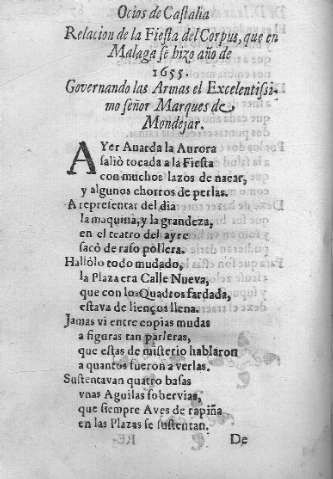 Ocios de Castalia
Relacion de la Fiesta del Corpus, que en
Malaga se hizo año de
1655.
Governando las Armas el Excelentissi-
mo señor Marques de
Mondejar.
AYer Anarda la Aurora
saliò tocada a la Fiesta
con muchos lazos de nacar,
y algunos chorros de perlas.
A representar del dia
la maquina, y la grandeza,
en el teatro del ayre
sacò de raso pollera.
Hallòlo todo mudado,
la Plaza era Calle Nueva,
que con los Quadros fardada,
estava de lienços llena.
Jamas vi entre copias mudas
a figuras tan parleras,
que estas de misterio hablaron
a quantos fueron a verlas.
Sustentavan quatro basas
vnas Aguilas sobervias,
que siempre Aves de rapiña
en las Plazas se sustentan.
RE- De